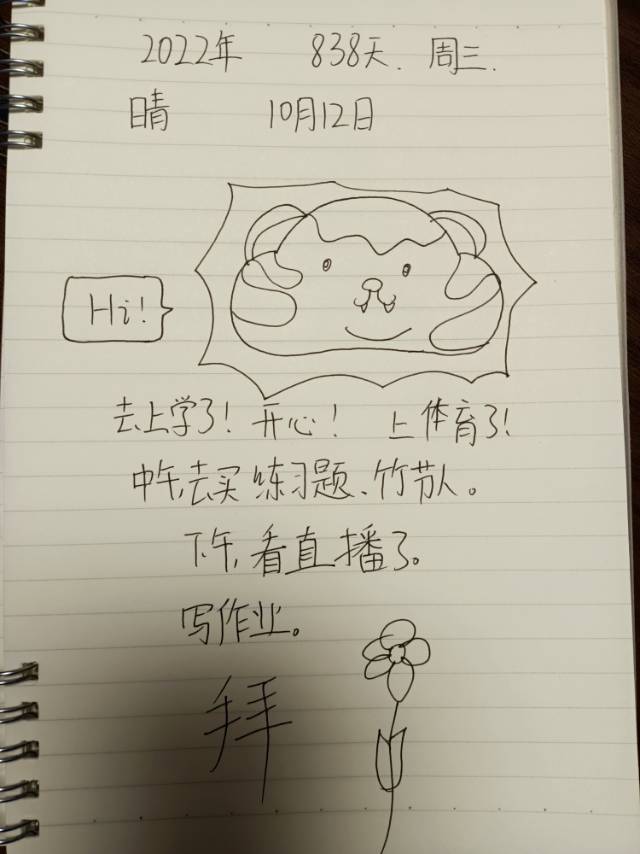 2022年 838天. 周三.
晴 10月12日
Hi!
去上学了! 开心! 上体育了!
中午,去买练习题、竹节人。
下午,看直播了。
写作业。
拜